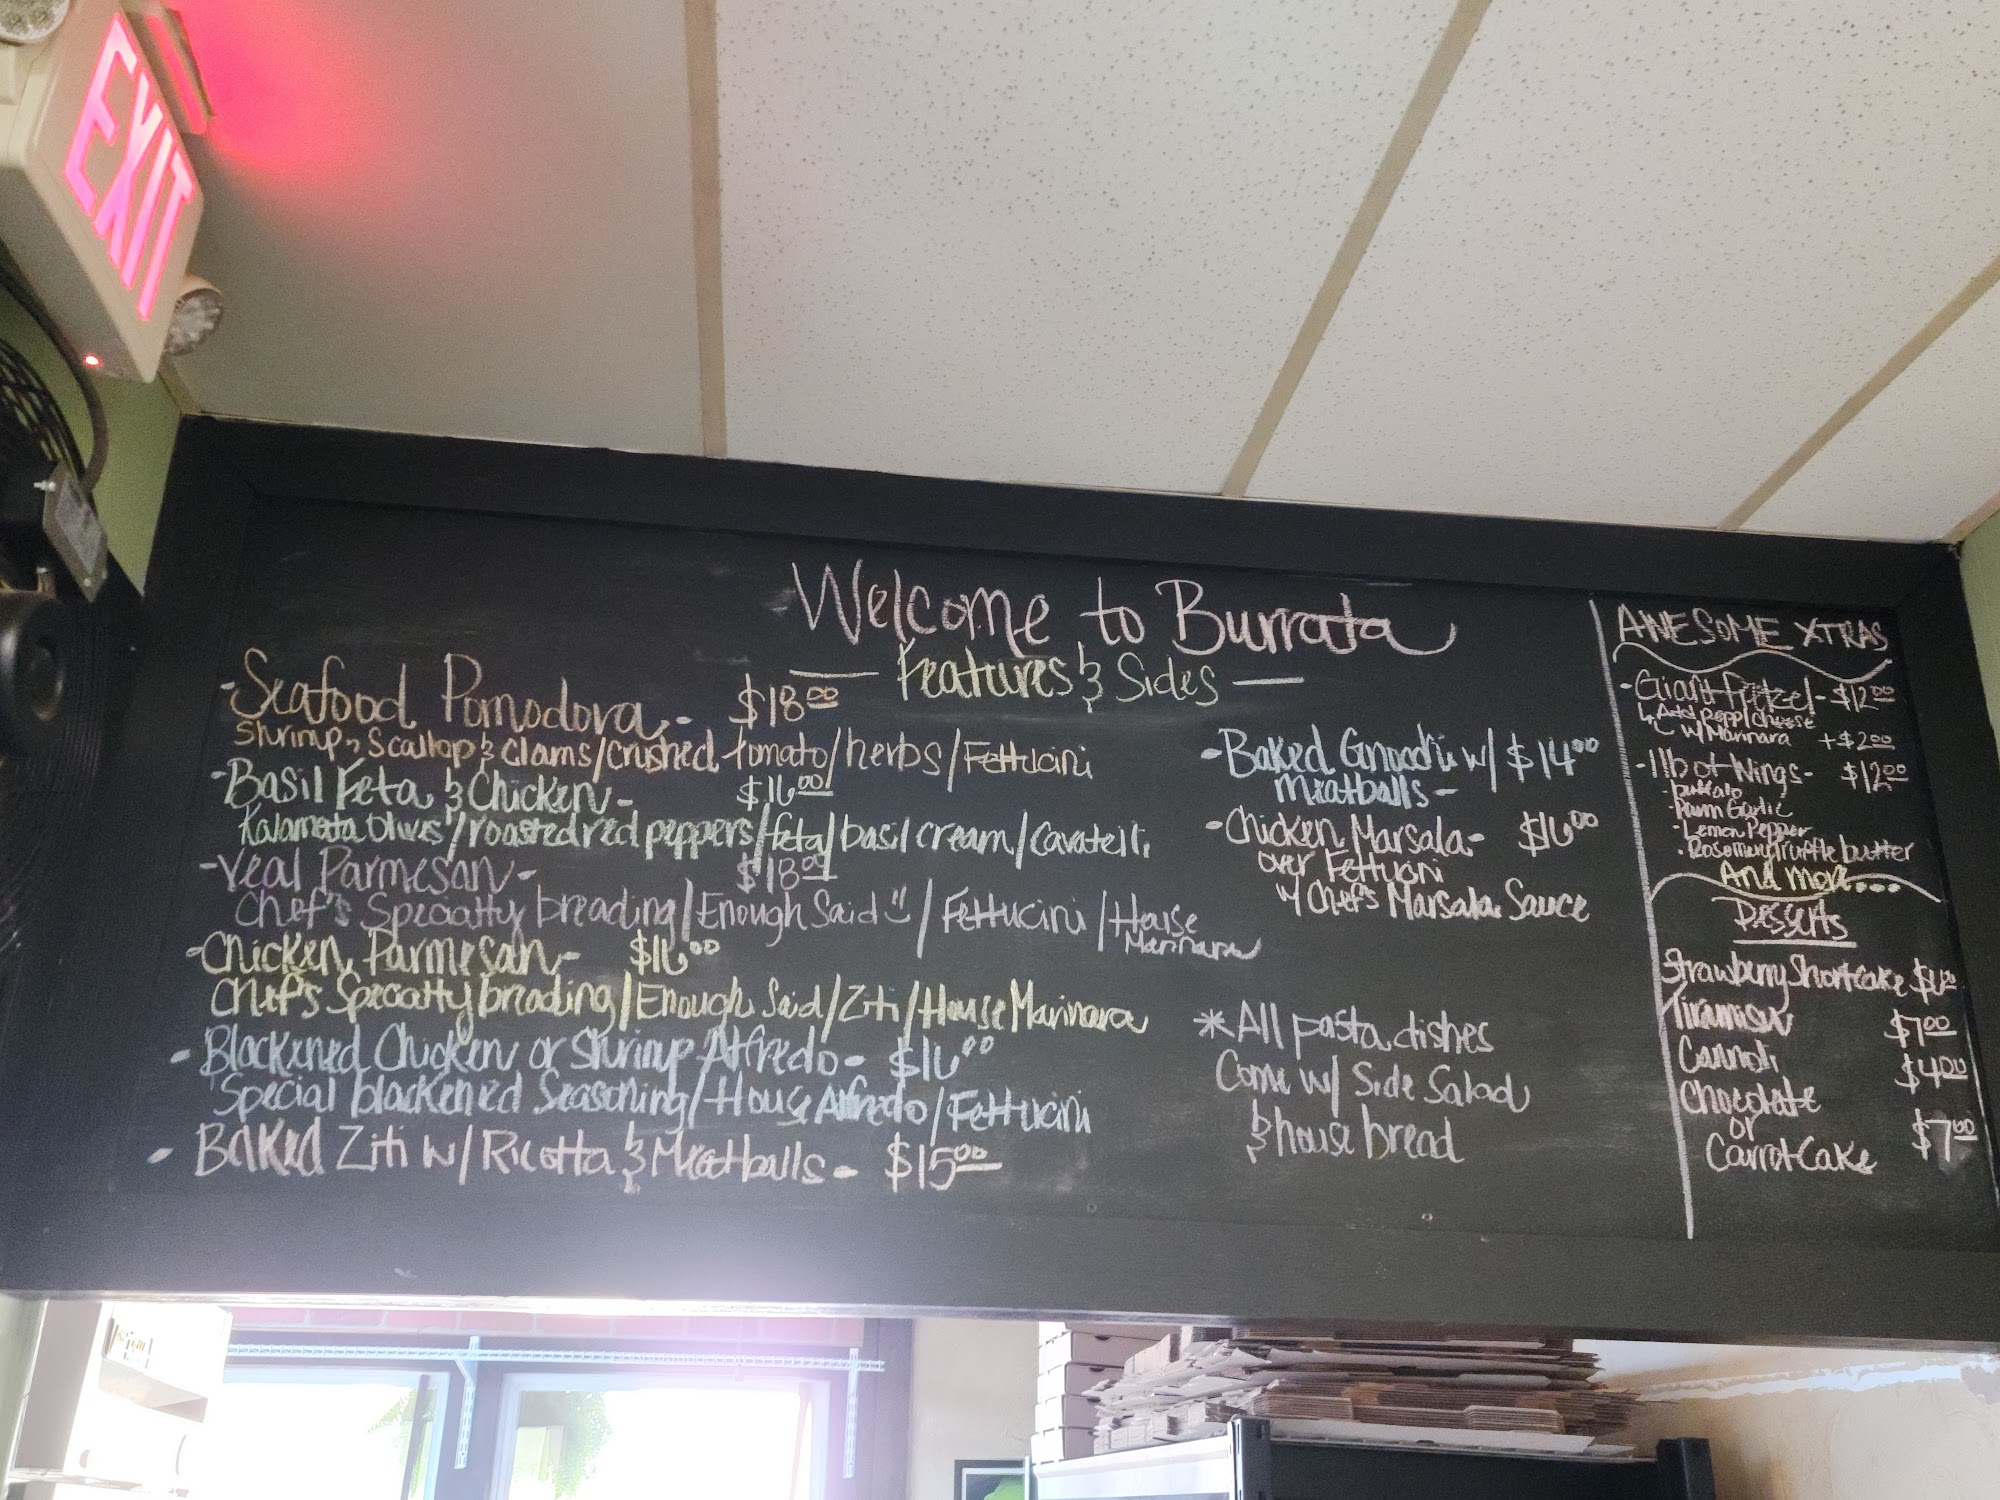 EXIT
Welcome to Burrata
Features & Sides
-Seafood Pomodora- $18.00
Shrimp, Scallop & Clams/Crushed tomato/herbs/Fettucini
-Basil Feta & Chicken- $16.00
Kalamata Olives/roasted red peppers/feta/basil cream/Cavatelli
-Veal Parmesan- $18.00
Chef's Specialty breading/Enough Said/Fettucini/House
Marinara
-Chicken Parmesan- $16.00
Chef's Specialty breading/Enough Said/Ziti/House Marinara
-Blackened Chicken or Shrimp Alfredo- $16.00
Special blackened Seasoning/House Alfredo/Fettucini
-Baked Ziti w/Ricotta & Meatballs- $15.00
-Baked Gnocchi w/ $14.00
Meatballs-
-Chicken Marsala- $16.00
over Fettucini
w/ Chef's Marsala Sauce
*All pasta dishes
Come w/ Side Salad
& house bread
AWESOME XTRAS
-Giant Pretzel- $12.00
Add Pepp/Cheese
w/ Marinara +$2.00
-1lb of Wings- $12.00
-buffalo
-Parm Garlic
-Lemon Pepper
-Rosemary Truffle butter
And more...
Desserts
Strawberry Shortcake
Tiramisu $7.00
Cannoli $4.00
Chocolate
or $7.00
Carrot Cake